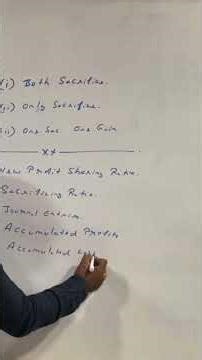 i) Both Sacrifice.
ii) Only Sacrifice.
iii) One Sac One Gain
x+
New Profit Sharing Ratio.
Sacrificing Ratio.
Journal Entries.
Accumulated Profits
Accumulated